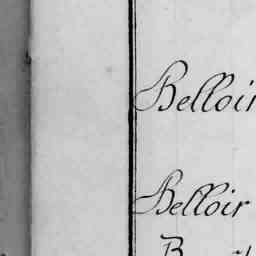 Belloir
Belloir